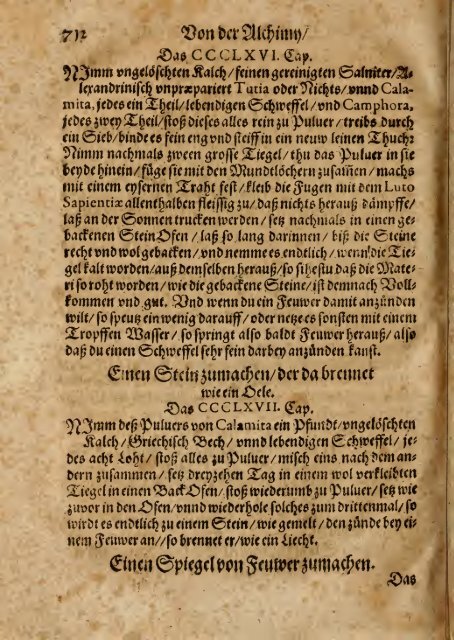 712 Von der Alchimy/
Das CCCCLXVI. Cap.
NImm vngelöschten Kalch/ feinen gereinigten Salniter/ A-
lexandrinisch vnpræpariert Tutia oder Nichts/ vnnd Cala-
mita, jedes ein Theil/ lebendigen Schweffel/ vnd Camphora,
jedes zwey Theil/ stoß dieses alles rein zu Puluer/ treibs durch
ein Sieb/ binde es fein eng vnd steiff in ein neuw leinen Thuch:
Nimm nachmals zween grosse Tiegel/ thu das Puluer in sie
beyde hinein/ füge sie mit den Mundtlöchern zusam̃en/ machs
mit einem eysernen Traht fest/ kleib die Fugen mit dem Luto
Sapientiæ allenthalben fleissig zu/ daß nichts herauß dämpffe/
laß an der Sonnen trucken werden/ setz nachmals in einen ge-
backenen Stein Ofen/ laß so lang darinnen/ biß die Steine
recht vnd wol gebacken/ vnd nemme es endtlich/ wenn die Tie-
gel kalt worden/ auß demselben herauß/ so sihestu daß die Mate-
ri so roht worden/ wie die gebackene Steine/ ist demnach Voll-
kommen vnd gut. Vnd wenn du ein Feuwer damit anzünden
wilt/ so speuß ein wenig darauff/ oder netze es sonsten mit einem
Tropffen Wasser/ so springt also baldt Feuwer herauß/ also
daß du einen Schweffel sehr fein darbey anzünden kanst.
Einen Stein zumachen/ der da brennet
wie ein Oele.
Das CCCCLXVII. Cap.
NImm deß Puluers von Calamita ein Pfundt/ vngelöschten
Kalch/ Griechisch Bech/ vnnd lebendigen Schweffel/ je-
des acht Loht/ stoß alles zu Puluer/ misch eins nach dem an-
dern zusammen/ setz dreyzehen Tag in einem wol verkleibten
Tiegel in einen Back Ofen/ stoß wiederumb zu Puluer/ setz wie
zuvor in den Ofen/ vnnd wiederhole solches zum drittenmal/ so
wirdt es endtlich zu einem Stein/ wie gemelt/ den zünde bey ei-
nem Feuwer an// so brennet er/ wie ein Liecht.
Einen Spiegel von Feuwer zumachen.
Das